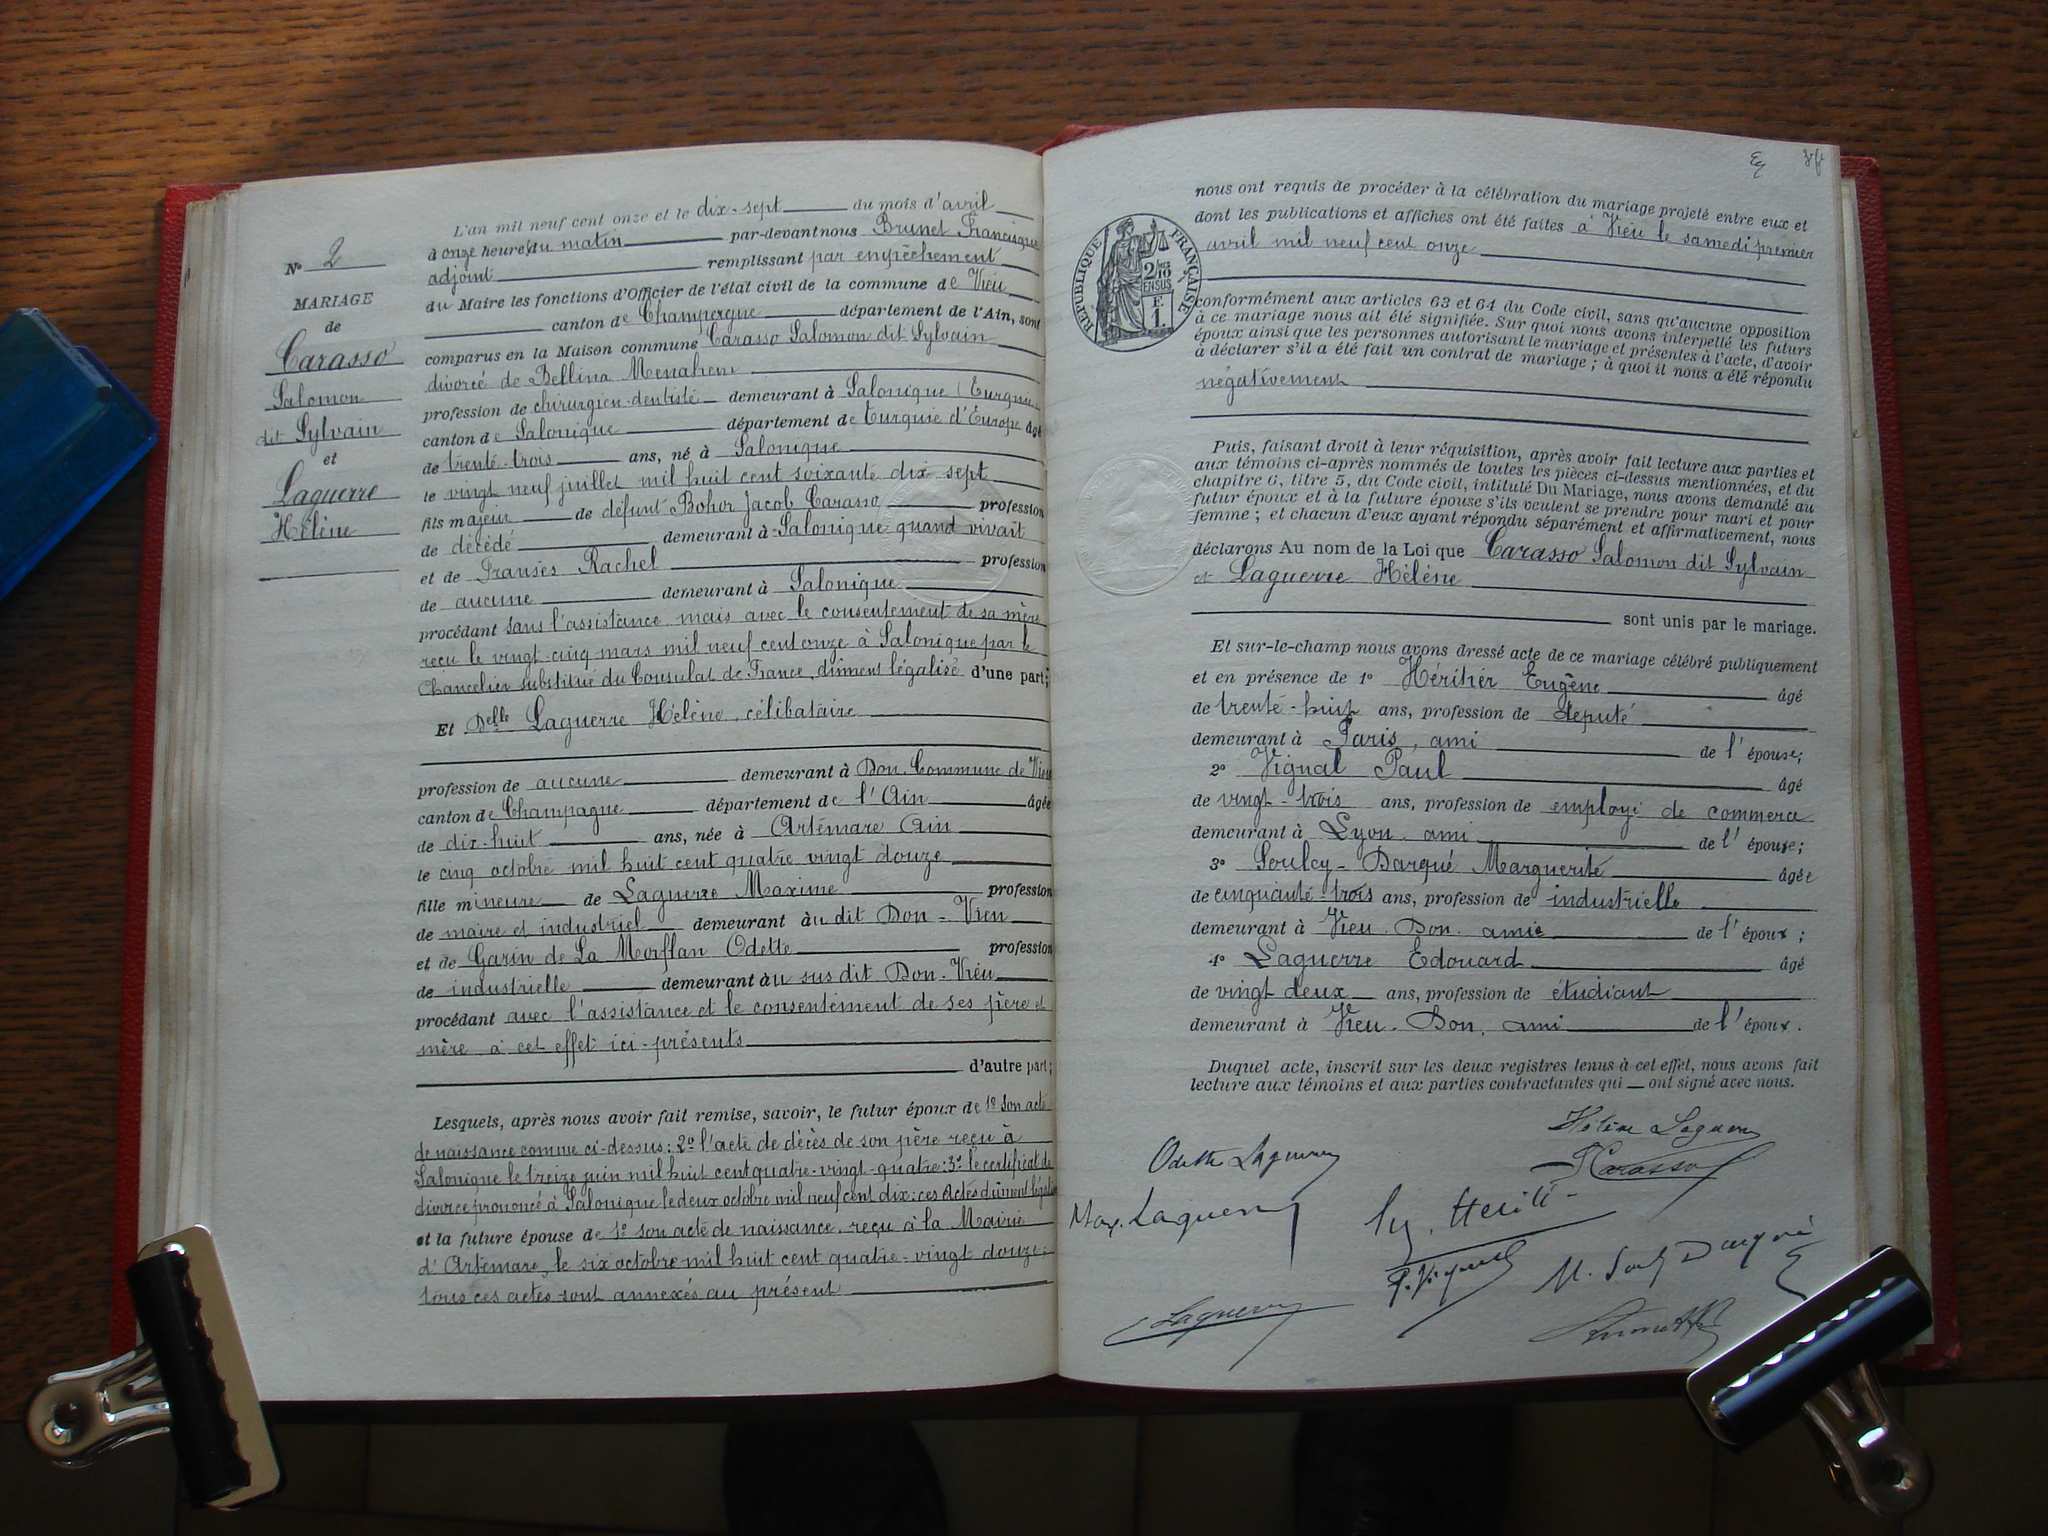 N° 2
MARIAGE
de
Carasso
Salomon
dit Sylvain
et
Laguerre
Hélène
L'an mil neuf cent onze et le dix-sept du mois d'avril
à onze heures du matin par-devant nous Brunet Francisque
adjoint remplissant par empêchement
du Maire les fonctions d'Officier de l'état civil de la commune de Vieu
canton de Champagne département de l'Ain, sont
comparus en la Maison commune Carasso Salomon dit Sylvain
divorcé de Bellina Menahem
profession de chirurgien-dentiste demeurant à Salonique (Turquie
canton de Salonique département de Turquie d'Europe âgé
de trente-trois ans, né à Salonique
le vingt neuf juillet mil huit cent soixante dix sept
fils majeur de défunt Bohor Jacob Carasso profession
de décédé demeurant à Salonique quand vivait
et de Franses Rachel profession
de aucune demeurant à Salonique
procédant sans l'assistance mais avec le consentement de sa mère
reçu le vingt-cinq mars mil neuf cent onze à Salonique par le
Chancelier substitué du Consulat de France, dûment légalisé d'une part;
Et Delle Laguerre Hélène, célibataire
profession de aucune demeurant à Don. Commune de Vieu
canton de Champagne département de l'Ain âgée
de dix-huit ans, née à Artemare Ain
le cinq octobre mil huit cent quatre vingt douze
fille mineure de Laguerre Maxime profession
de maire et industriel demeurant àu dit Don-Vieu
et de Garin de La Morflan Odette profession
de industrielle demeurant àu sus dit Don-Vieu
procédant avec l'assistance et le consentement de ses père et
mère à cet effet ici-présents
d'autre part;
Lesquels, après nous avoir fait remise, savoir, le futur époux de 1° son acte
de naissance comme ci-dessus: 2° l'acte de décès de son père reçu à
Salonique le treize juin mil huit cent quatre-vingt-quatre: 3° le certificat de
divorce prononcé à Salonique le deux octobre mil neuf cent dix: ces actes dûment légalisés
et la future épouse de 1° son acte de naissance, reçu à la Mairie
d'Artemare, le six octobre mil huit cent quatre-vingt douze:
tous ces actes sont annexés au présent
nous ont requis de procéder à la célébration du mariage projeté entre eux et
dont les publications et affiches ont été faites à Vieu le samedi premier
avril mil neuf cent onze
RÉPUBLIQUE FRANÇAISE
2/10
EN SUS
F
1.
conformément aux articles 63 et 64 du Code civil, sans qu'aucune opposition
à ce mariage nous ait été signifiée. Sur quoi nous avons interpellé les futurs
époux ainsi que les personnes autorisant le mariage et présentes à l'acte, d'avoir
à déclarer s'il a été fait un contrat de mariage; à quoi il nous a été répondu
négativement
Puis, faisant droit à leur réquisition, après avoir fait lecture aux parties et
aux témoins ci-après nommés de toutes les pièces ci-dessus mentionnées, et du
chapitre 6, titre 5, du Code civil, intitulé Du Mariage, nous avons demandé au
futur époux et à la future épouse s'ils veulent se prendre pour mari et pour
femme; et chacun d'eux ayant répondu séparément et affirmativement, nous
déclarons Au nom de la Loi que Carasso Salomon dit Sylvain
et Laguerre Hélène
sont unis par le mariage.
Et sur-le-champ nous avons dressé acte de ce mariage célébré publiquement
et en présence de 1° Héritier Eugène âgé
de trente-huit ans, profession de député
demeurant à Paris, ami de l'épouse;
2° Vignal Paul âgé
de vingt-trois ans, profession de employé de commerce
demeurant à Lyon. ami de l'épouse;
3° Soulcy-Darqué Marguerite âgée
de cinquante-trois ans, profession de industrielle
demeurant à Vieu. Don. amie de l'époux;
4° Laguerre Edouard âgé
de vingt deux ans, profession de étudiant
demeurant à Vieu-Don. ami de l'époux.
Duquel acte, inscrit sur les deux registres tenus à cet effet, nous avons fait
lecture aux témoins et aux parties contractantes qui — ont signé avec nous.
Hélène Laguerre
Odette Laguerre
SCarasso
Max. Laguerre
P. Vignal
Laguerre